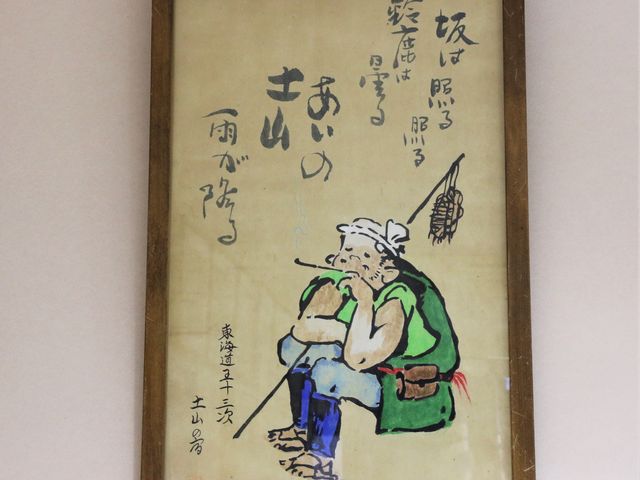 坂は照る照る
鈴鹿は曇る
あいの
土山
雨が降る
東海道五十三次
土山の宿